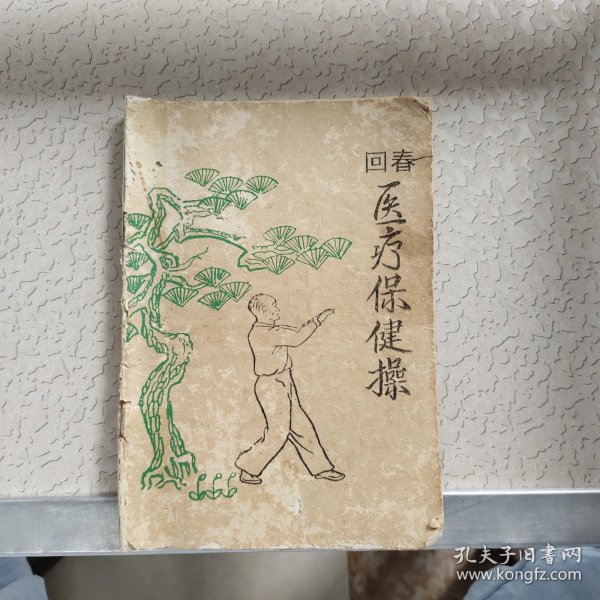 回春
医疗保健操
孔夫子旧书网
www.kongfz.com